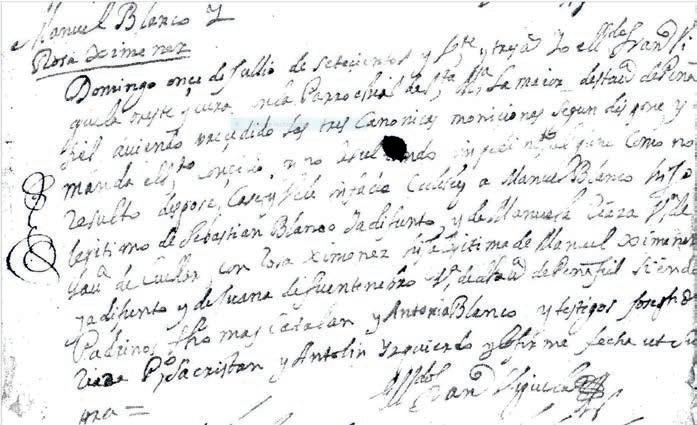 Manuel Blanco y
Rosa Ximenez
Domingo once de Jullio de setecientos y ste y treyta Yo el Lldo Frand Si
guela neste y cura enla Parrochial de Sta Ma la maior desta va de Peña
fiel aviendo precedido las tres Canonicas moniciones segun dispone y
manda el sto concilio y no resultando impedimto alguno como no
resulto dispose, Case y Vele infacie Eclesie a Manuel Blanco hijo
legitimo de Sebastian Blanco ya difunto y de Manuela
va de Cuellar con Rosa Ximenez hija legitima de Manuel Ximenez
ya difunto y de Juana de fuentenebro de Peñafiel siendo
Padrinos thomas Catalan y Antonia Blanco y testigos Joseph de
Po sacristan y Antolin Yzquierdo y lo firme fecha ut su
pra =
Lldo Frand Siguela